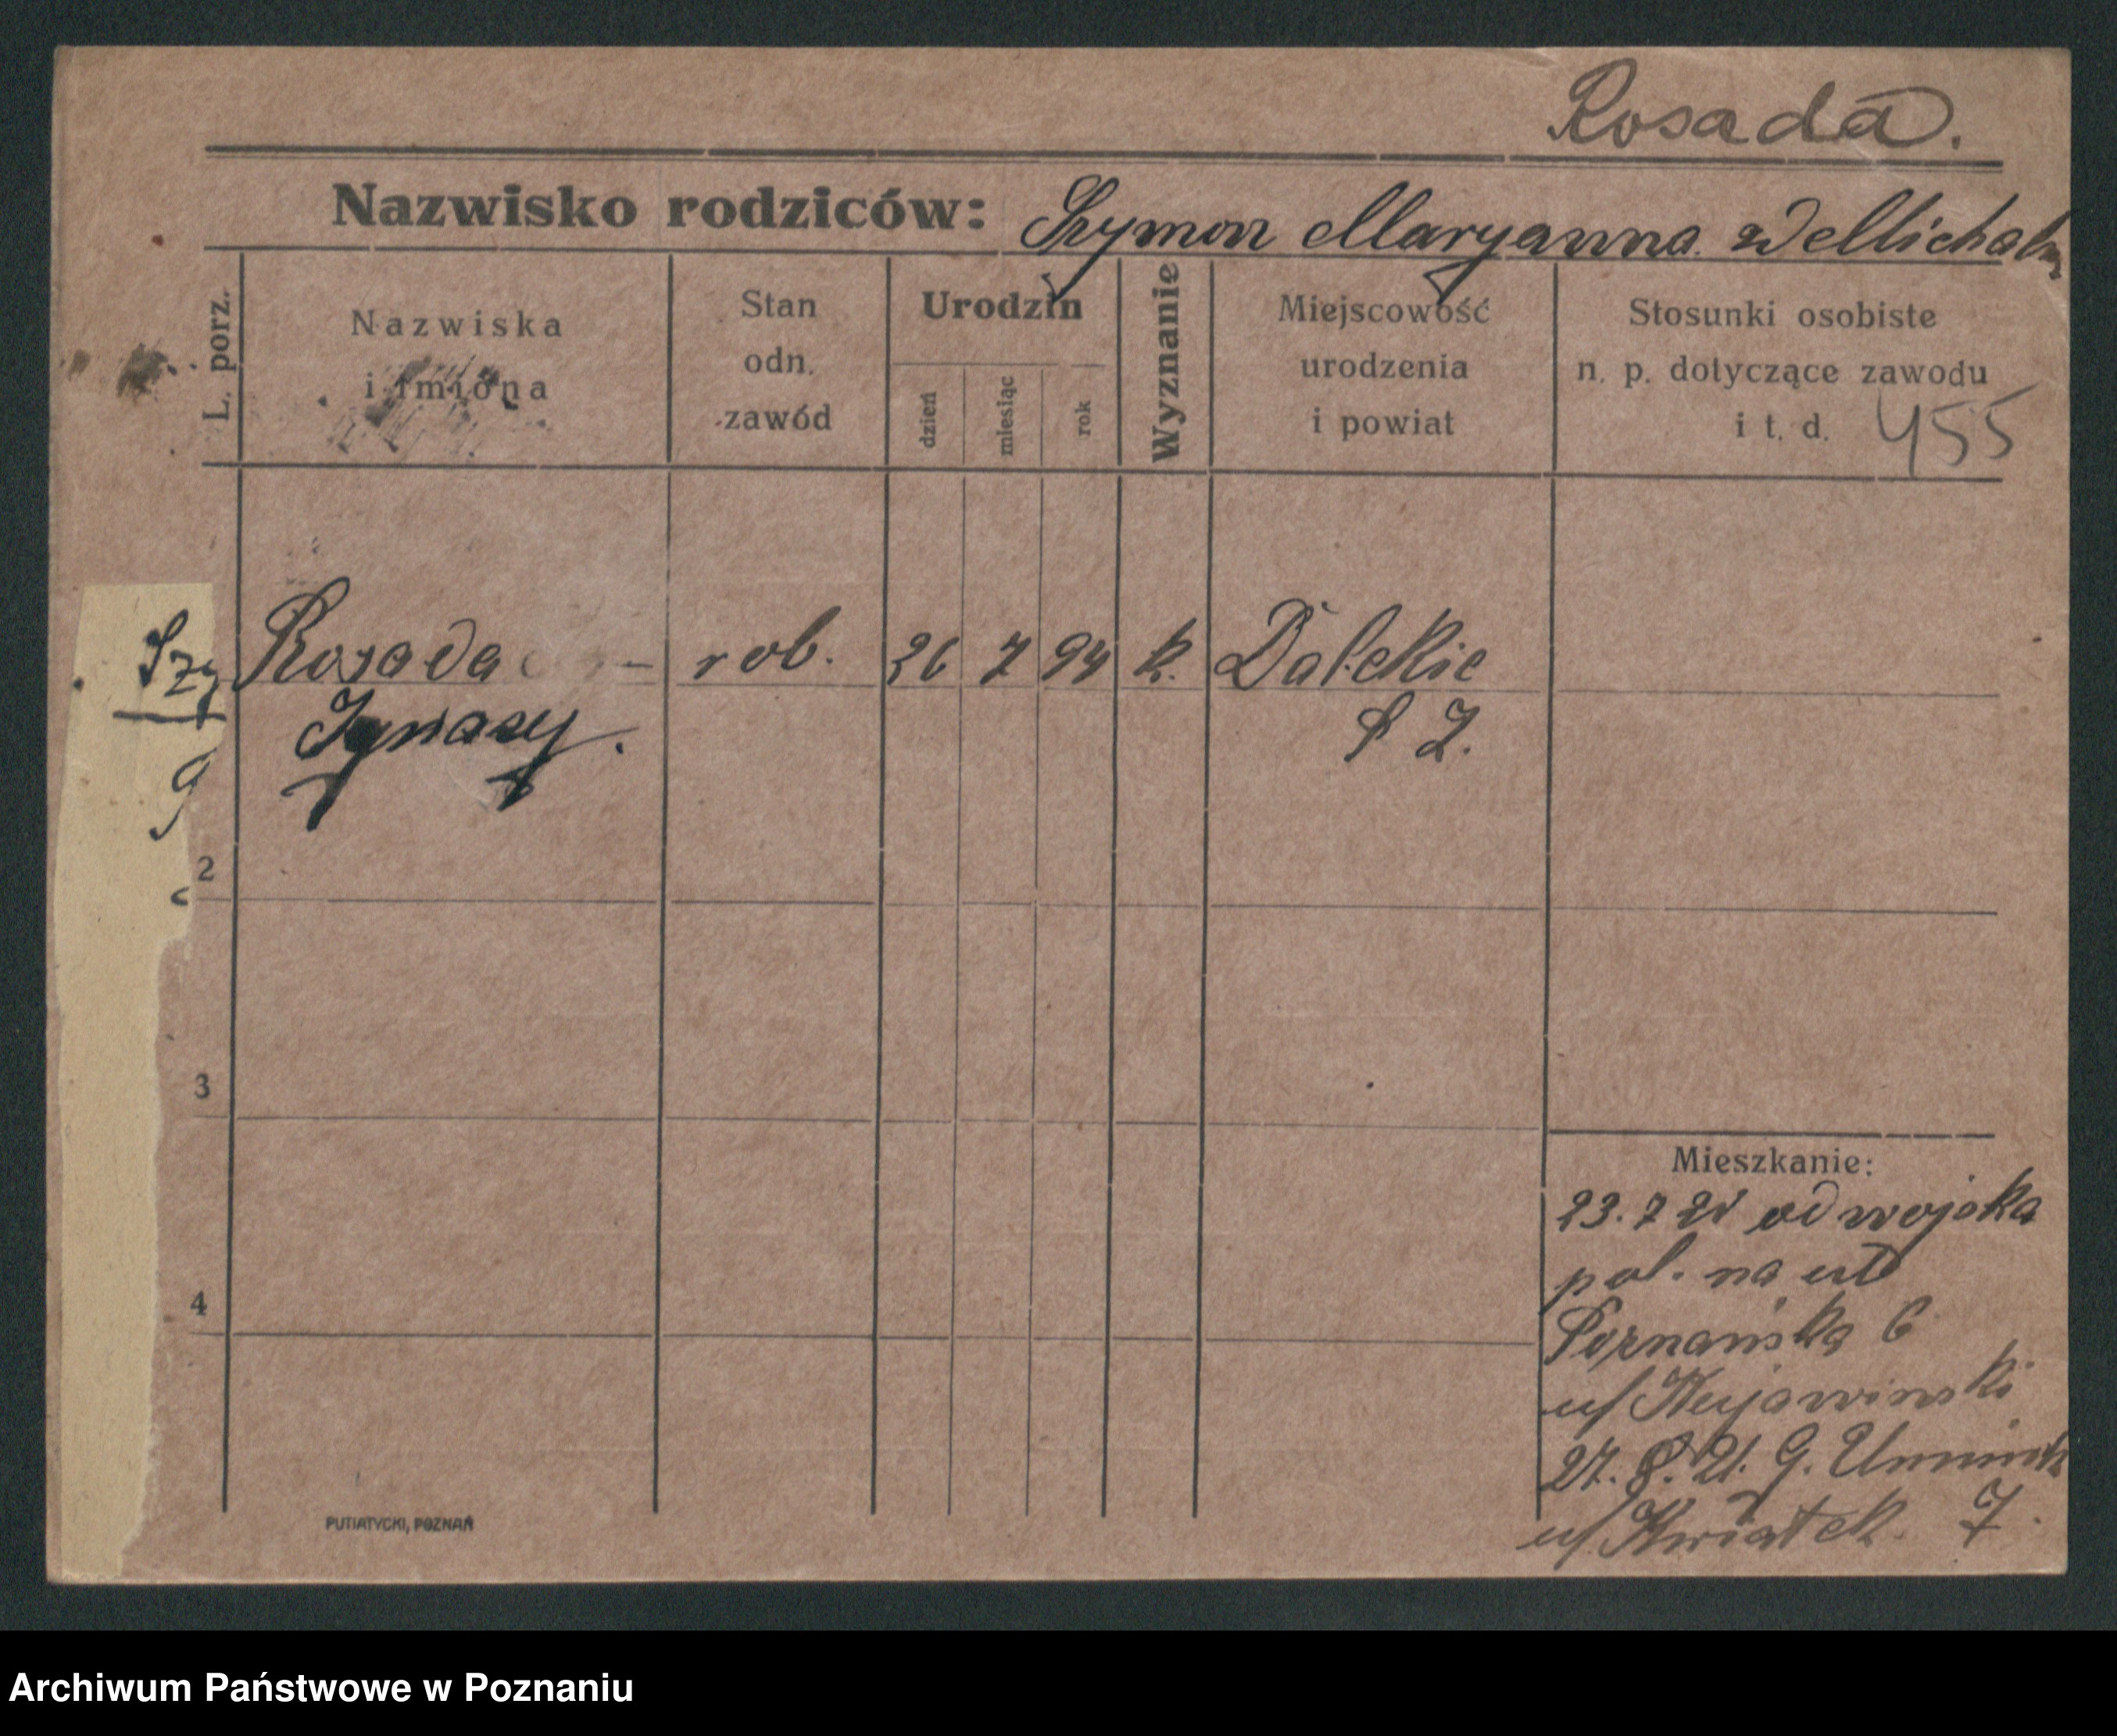 Rosada.
Nazwisko rodziców: Szymon Maryanna
L. porz.
Nazwiska
i imiona
Stan
odn.
zawód
Urodzin
dzień
miesiąc
rok
Wyznanie
Miejscowość
urodzenia
i powiat
Stosunki osobiste
n. p. dotyczące zawodu
i t. d. 455
Szy
Rosada rob. 26 7 94 k. Dalekie
Ignacy.
2
3
4
Mieszkanie:
23. 7 21 od wojska
pol. na
Poznańska 6
u/ Kujawinski
27. 8. 21. G.
u/ Kwiatek. 7.
PUTIATYCKI, POZNAŃ
Archiwum Państwowe w Poznaniu